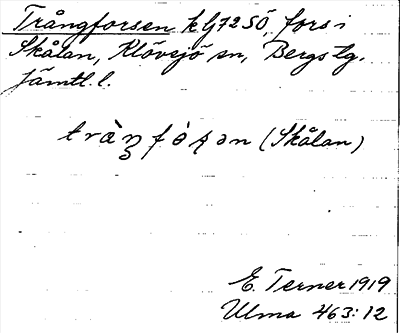 Trångforsen k lj 72 SÖ, fors i
Skålan, Klövsjö sn, Bergs tg.
Jämtl. l.
(Skålan)
E. Terner 1919
Ulma 463:12